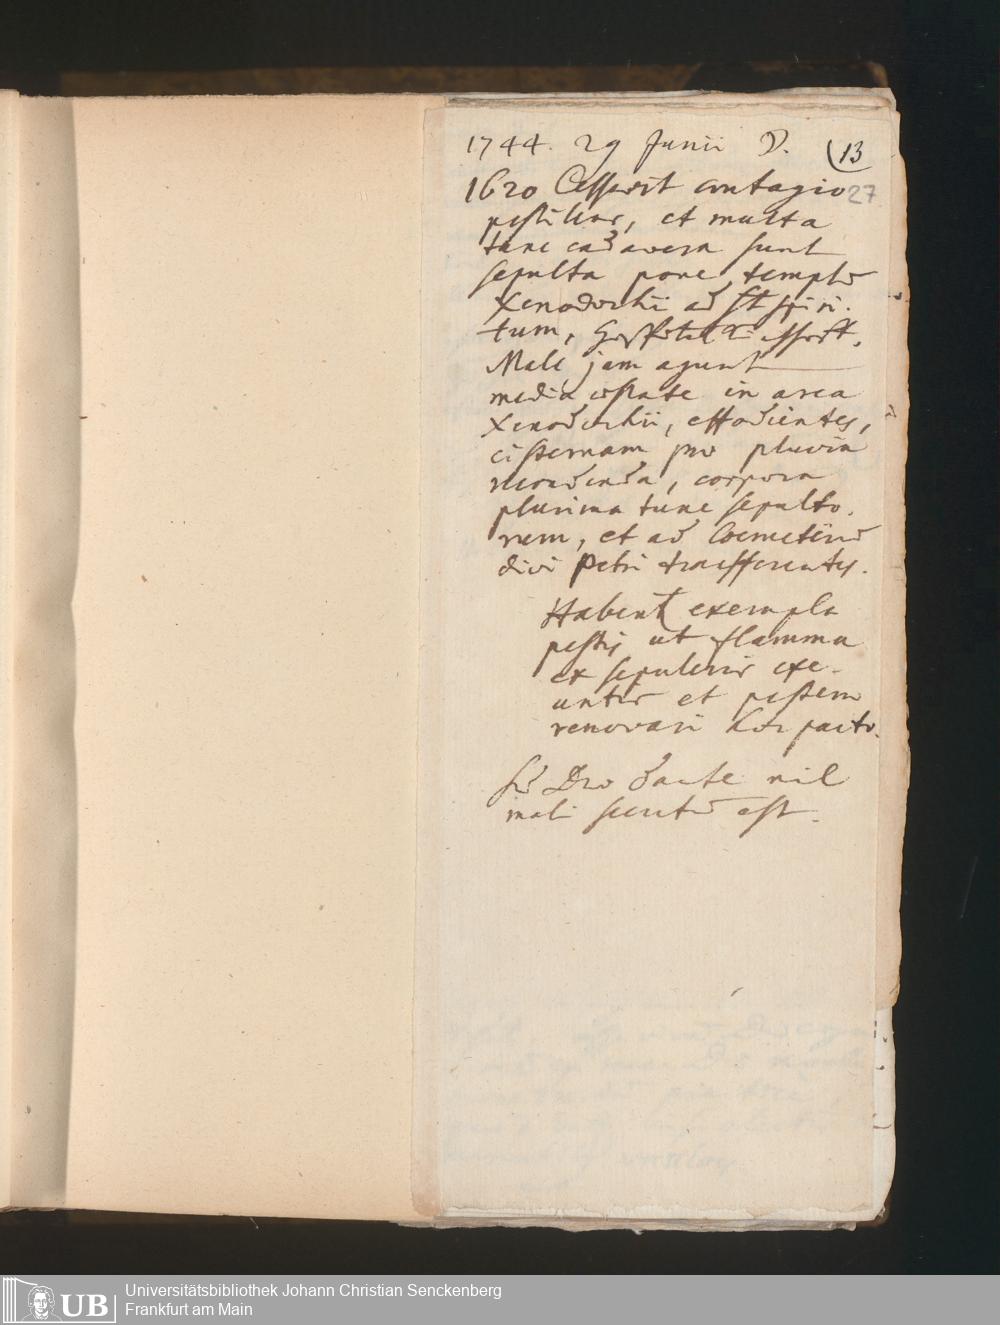 1744. 29 Junii D. (13
1620 Cesserit contagio 27
pestilens, et multa
tunc cadavera sunt
sepulta pone templū
Xenodochii ad St spiri.
tum,
Male jam agunt
mediâ æstate in area
Xenodochii, effodientes,
cisternam pro pluvia
recondenda, corpora
plurima tunc sepulto.
rum, et ad Coemeteriū
divi Petri transferentes.
Habent exempla
pestis ut flamma
ex sepulcris exe-
untis et pestem
renovari hoc pacto.
sed Deo dante nil
mali secutū est.
UB
Universitätsbibliothek Johann Christian Senckenberg
Frankfurt am Main